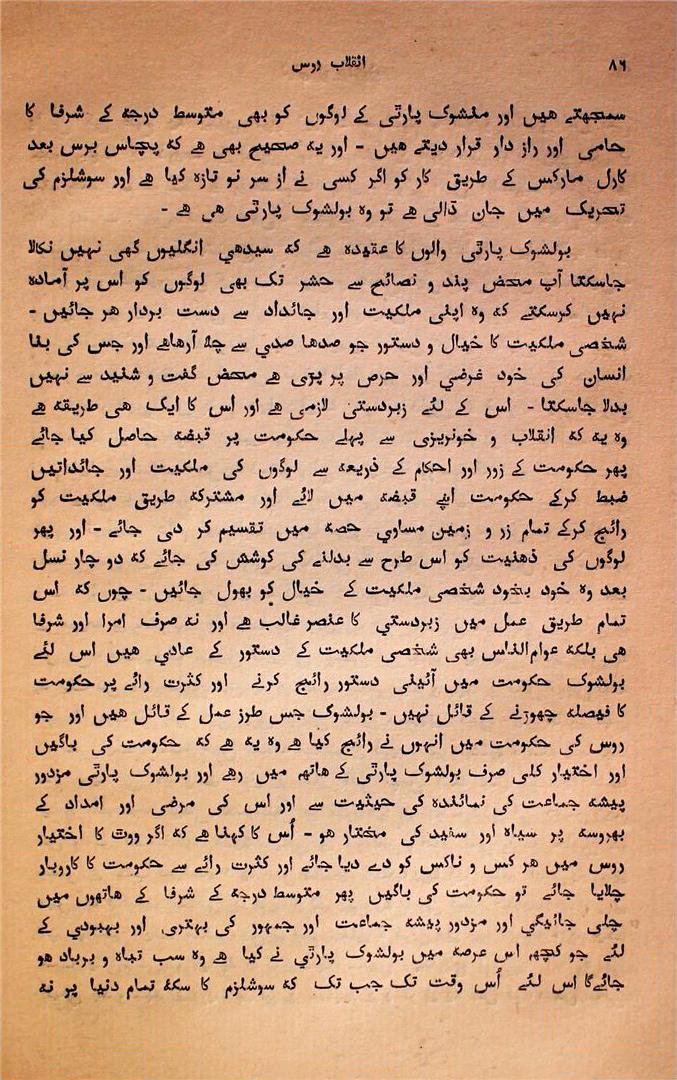 ۸۶ انقلاب روس
سمجھتے ھیں اور منشوک پارٹی کے لوگوں کو بھی متوسط درجہ کے شرفا کا
حامی اور راز دار قرار دیتے ھیں - اور یہ صحیح بھی ھے کہ پچاس برس بعد
کارل مارکس کے طریق کار کو اگر کسی نے از سر نو تازہ کیا ھے اور سوشلزم کی
تحریک میں جان ڈالی ھے تو وہ بولشوک پارٹی ھی ھے -
بولشوک پارٹی والوں کا عقیدہ ھے کہ سیدھي انگلیوں گھی نہیں نکالا
جاسکتا آپ محض پند و نصائح سے حشر تک بھی لوگوں کو اس پر آمادہ
نہیں کرسکتے کہ وہ اپنی ملکیت اور جائداد سے دست بردار ھر جائیں -
شخصی ملکیت کا خیال و دستور جو صدھا صدي سے چلا آرھاھے اور جس کی بنا
انسان کی خود غرضي اور حرص پر پڑی ھے محض گفت و شنید سے نہیں
بدلا جاسکتا - اس کے لئے زبردستی لازمی ھے اور اُس کا ایک ھی طریقہ ھے
وہ یہ کہ انقلاب و خونریزی سے پہلے حکومت پر قبضہ حاصل کیا جائے
پھر حکومت کے زور اور احکام کے ذریعہ سے لوگوں کی ملکیت اور جائداتیں
ضبط کرکے حکومت اپنے قبضہ میں لائے اور مشترکہ طریق ملکیت کو
رائج کرکے تمام زر و زمین مساوي حصہ میں تقسیم کر دی جائے - اور پھر
لوگوں کی ذھنیت کو اس طرح سے بدلنے کی کوشش کی جائے کہ دو چار نسل
بعد وہ خود بخود شخصی ملکیت کے خیال کو بھول جائیں - چوں کہ اس
تمام طریق عمل میں زبردستي کا عنصر غالب ھے اور نہ صرف امرا اور شرفا
ھی بلکہ عوام‌الناس بھی شخصی ملکیت کے دستور کے عادي ھیں اس لئے
بولشوک حکومت میں آئینی دستور رائج کرنے اور کثرت رائے پر حکومت
کا فیصلہ چھوڑنے کے قائل نہیں - بولشوک جس طرز عمل کے قائل ھیں اور جو
روس کی حکومت میں انہوں نے رائج کیا ھے وہ یہ ھے کہ حکومت کی باگیں
اور اختیار کلی صرف بولشوک پارٹی کے ھاتھ میں رھے اور بولشوک پارٹی مزدور
پیشہ جماعت کی نمائندہ کی حیثیت سے اور اس کی مرضی اور امداد کے
بھروسہ پر سیاہ اور سفید کی مختار ھو - اُس کا کہنا ھے کہ اگر ووٹ کا اختیار
روس میں ھر کس و ناکس کو دے دیا جائے اور کثرت رائے سے حکومت کا کاروبار
چلایا جائے تو حکومت کی باگیں پھر متوسط درجہ کے شرفا کے ھاتھوں میں
چلی جائیگی اور مزدور پیشہ جماعت اور جمہور کی بہتری اور بہبودي کے
لئے جو کچھ اس عرصہ میں بولشوک پارٹي نے کیا ھے وہ سب تباہ و برباد ھو
جائےگا اس لئے اُس وقت تک جب تک کہ سوشلزم کا سکہ تمام دنیا پر نہ